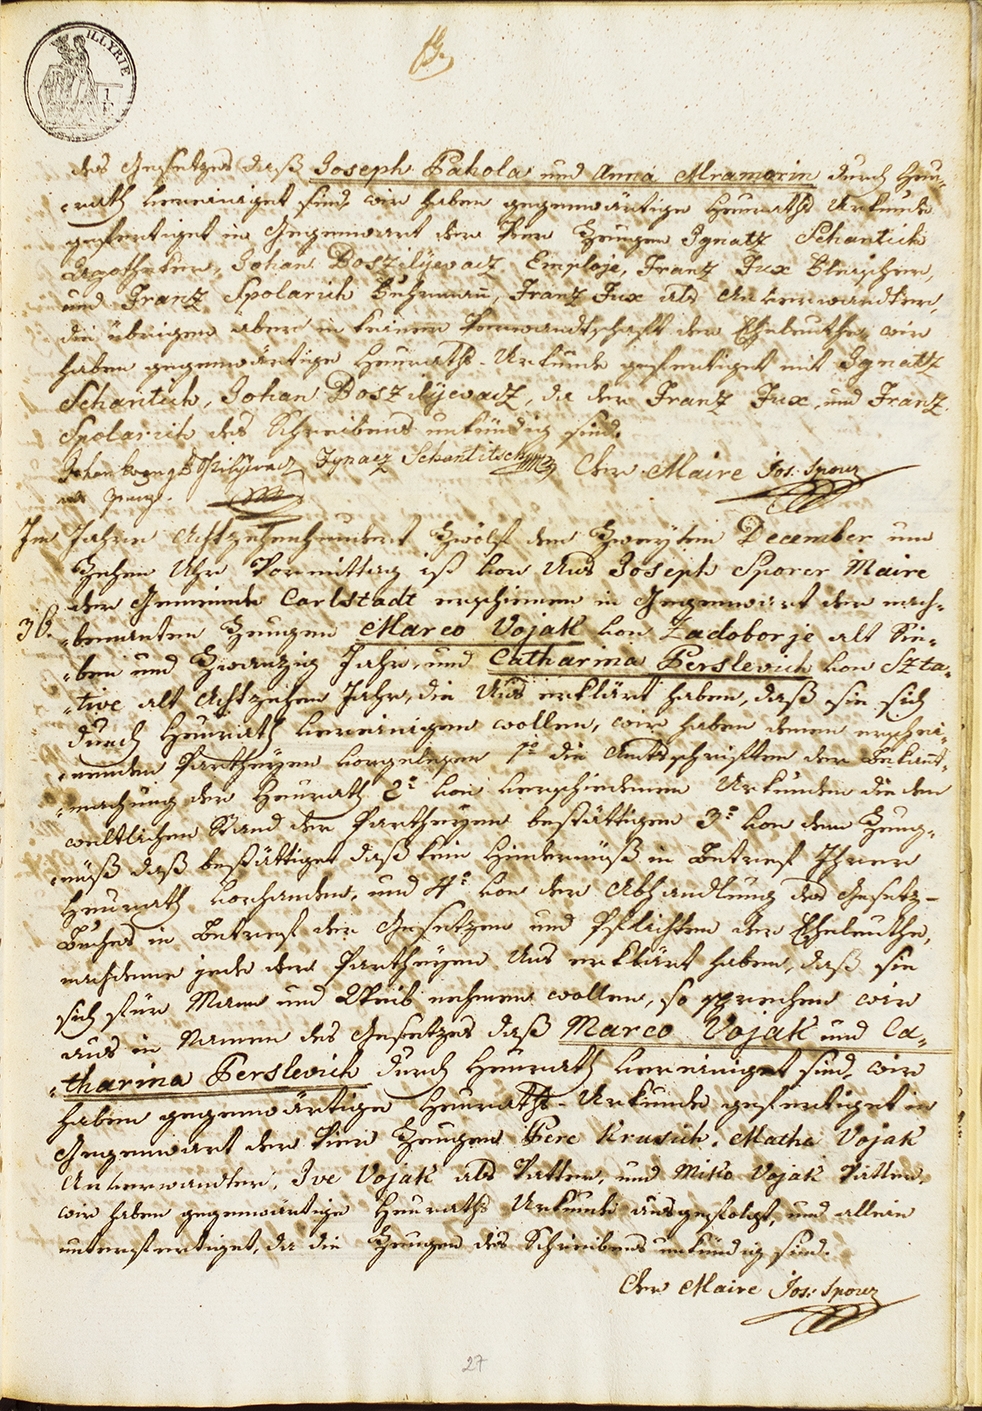 ILLYRIE
19.
des Gesetzes daß Joseph Pahola und Anna Mramorin durch Heu„
„rath vereiniget sind wir haben gegenwärtige Heuraths Urkunde
gefertiget in Gegenwart der Vier Zeugen Ignatz Schantich
Apotheker, Johan Doszilÿevacz Emploje, Frantz Fux Fleischer,
und Frantz Spolarich Fuhrmann, Frantz Fux als Anverwandter,
die übrigen aber in keiner Verwandtschaft der Eheleuthe, wir
haben gegenwärtige Heuraths-Urkunde gefertiget mit Ignatz
Schantich, Johan Doszilÿevacz, da der Frantz Fux, und Frantz
Spolarich des Schreibens unkündig sind.
Ignacz Schantitsch Der Maire Jos: Sporer
als Zeuge.
Im Jahre Achtzehenhundert Zwölf den Zweÿten December um
Zehen Uhr Vormittag ist vor Uns Joseph Sporer Maire
der Gemeinde Carlstadt erschienen in Gegenwart der nach„
36. „benanten Zeugen Marco Vojak von Zadoborje alt Sie„
„ben und Zwanzig Jahr, und Catharina Perslevich von Szta„
„tive alt Achtzehen Jahr, die Uns erklärt haben, daß sie sich
durch Heurath vereinigen wollen, wir haben denen erschei„
„nenden Partheÿen vorgelesen 1º die Amtsschriften der Bekannt„
„machung der Heurath 2º von verschiedenen Urkunden die den
weltlichen Stand der Partheÿen bestättigen 3º von dem Zeug„
„nüß daß bestättiget daß kein Hindernüß in Betref Ihrer
Heurath vorhanden, und 4º von der Abhandlung des Gesetz-
Buches in Betref der Gesetzen und Pflichten der Eheleuthe,
nachdeme jede der Partheÿen Uns erklärt haben, daß sie
sich für Mann und Weib nehmen wollen, so sprechen wir
aus in Namen des Gesetzes daß Marco Vojak und Ca„
„tharina Perslevich durch Heurath vereiniget sind, wir
haben gegenwärtige Heuraths-Urkunde gefertiget in
Gegenwart der Vier Zeugen Pere Krusich, Matha Vojak
Anverwandter, Ive Vojak als Vatter, und Miko Vojak Vatter,
wir haben gegenwärtige Heuraths Urkunde ausgefolgt, und allein
unterfertiget, da die Zeugen des Schreibens unkündig sind.
Der Maire Jos: Sporer
27